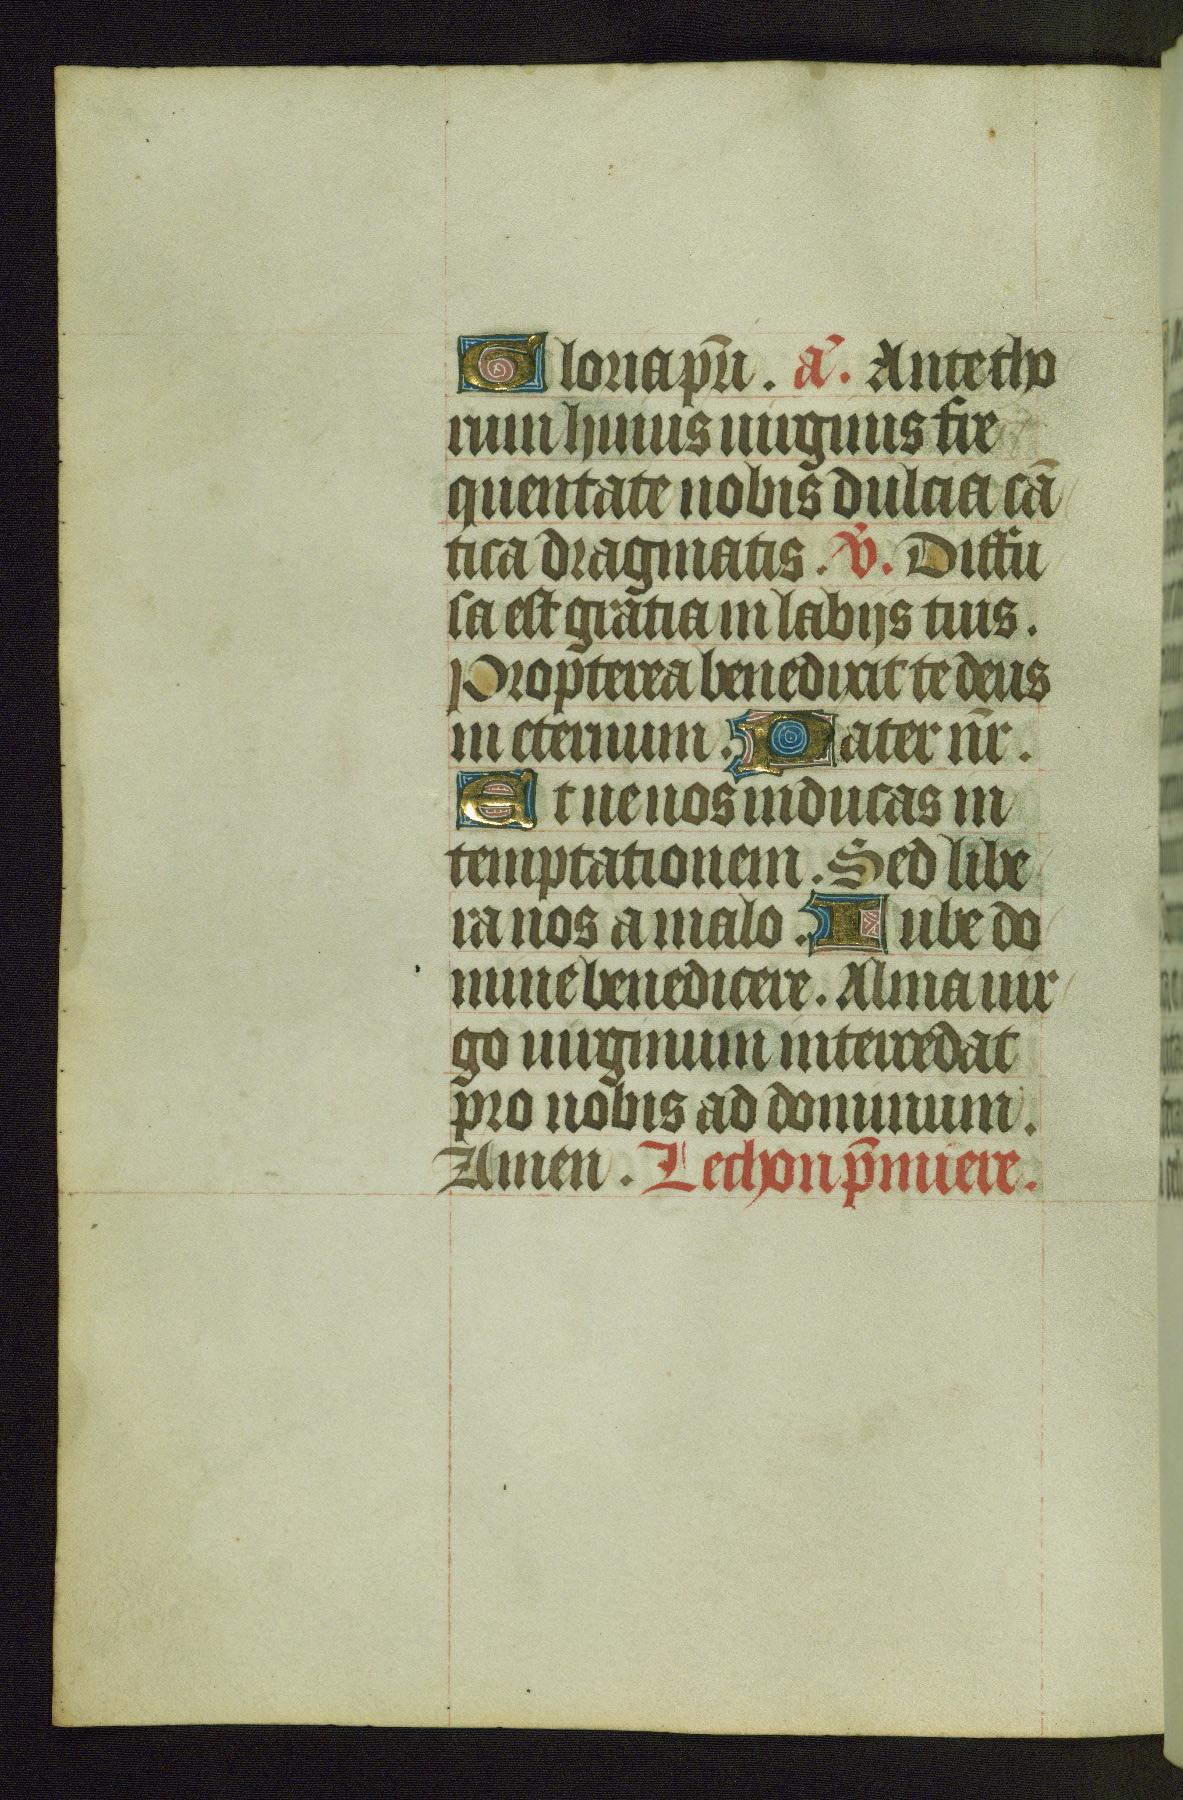 Gloria pr̄i. a᷃. Ante tho
rum huius uirginis fre
quentate nobis dulcia cā
tica dragmatis. v᷃. Diffu
sa est gratia in labijs tuis.
Propterea benedixit te deus
in eternum. Pater nr̄.
Et ne nos inducas in
temptationem. Sed libe
ra nos a malo. Iube do
mine benedicere. Alma uir
go uirginum intercedat
pro nobis ad dominum.
Amen. Lechon p̄miere.